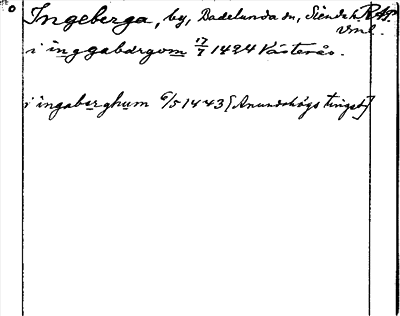 Ingeberga, by, Badelunda sn, Siende h. RAp.
Vml.
i inggabærgom 17/7 1424 Västerås.
i ingabærghum 6/5 1443 [Anundshögs tingst.]